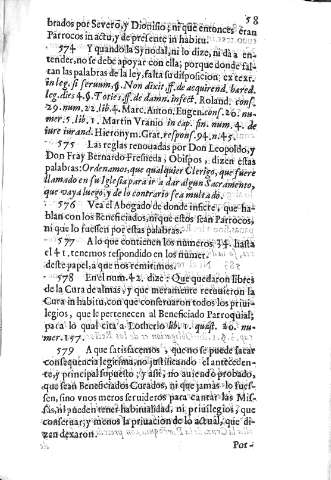 58
brados por Severo, y Dionisio; ni que entonces eran
Parrocos in actu, y de presente in habitu.
574 Y quando la Synodal, ni lo dize, ni dà a en-
tender, no se debe apoyar con ella; porque donde fal-
tan las palabras de la ley, falta su disposicion; ex text.
in leg. si servum, §. Non dixit, ff. de acquirend. hæred.
leg. dies 4. §. Toties, ff. de damn. infect. Roland. cons.
29. num. 22. lib. 4. Marc. Anton. Eugen. cons. 26. nu-
mer. 5. lib. 1. Martin Vranio in cap. fin. num. 4. de
iure iurand. Hieronym. Grat. respons. 94. n. 45.
575 Las reglas renouadas por Don Leopoldo, y
Don Fray Bernardo Fresneda, Obispos, dizen estas
palabras: Ordenamos, que qualquier Clerigo, que fuere
llamado en su Iglesia para ir a dar algun Sacramento,
que vaya luego, y de lo contrario sea multado.
576 Vea el Abogado de donde infiere, que ha-
blan con los Beneficiados, ni que estos sean Parrocos,
ni que lo fuessen por estas palabras.
577 A lo que contienen los numeros 34. hasta
el 41. tenemos respondido en los numer.
deste papel, a que nos remitimos.
578 En el num. 42. dize: Que quedaron libres
de la Cura de almas, y que meramente retuuieron la
Cura in habitu, con que conseruaron todos los priui-
legios, que le pertenecen al Beneficiado Parroquial;
para lo qual cita a Lotherio lib. 1. quæst. 20. nu-
mer. 157.
579 A que satisfacemos, que no se puede sacar
consequencia legitima, no justificando el anteceden-
te, y principal supuesto; y assi, no auiendo probado,
que sean Beneficiados Curados, ni que jamàs lo fues-
sen, sino vnos meros seruideros para cantar las Mis-
sas, ni pueden tener habitualidad, ni priuilegios, que
conseruar; y menos la priuacion de lo actual, que di-
zen dexaron.
Por-